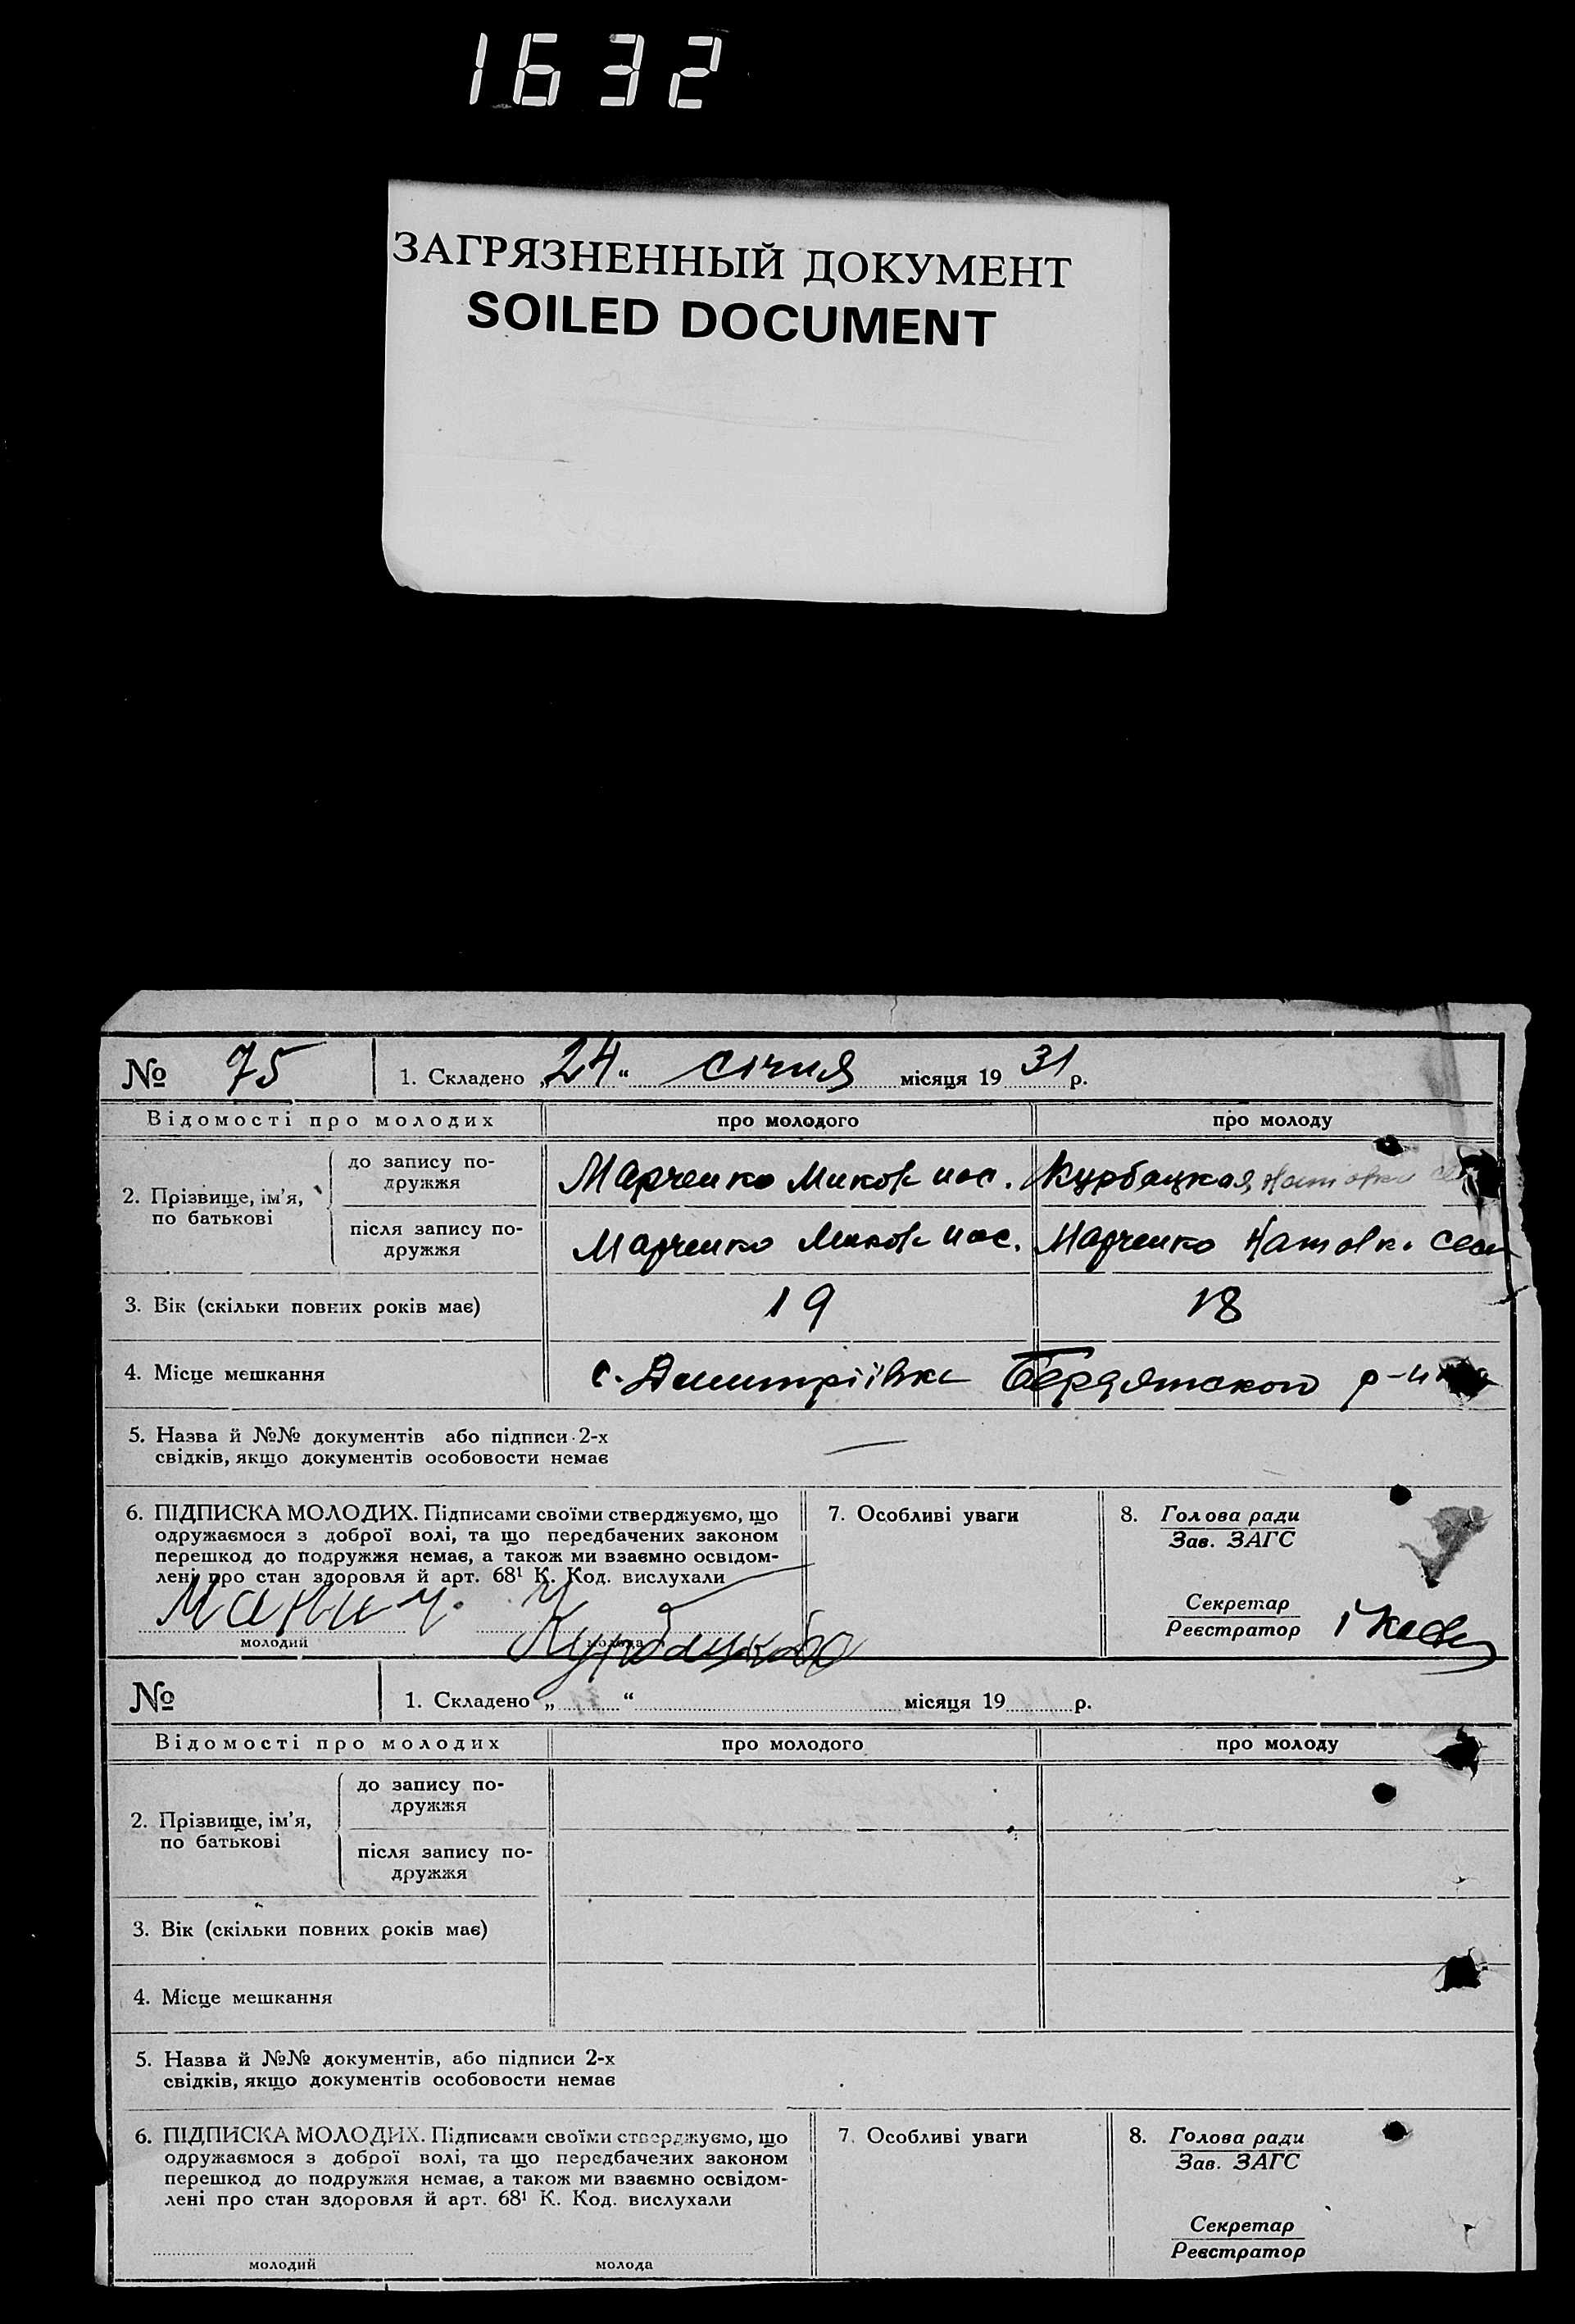 1632
ЗАГРЯЗНЕННЫЙ ДОКУМЕНТ
SOILED DOCUMENT
№ 75 1. Складено „24“ січня місяця 1931 р.
Відомості про молодих про молодого про молоду
2. Прізвище, ім'я, по батькові
до запису по-
дружжя
Марченко Микол. Курбацкая
після запису по-
дружжя
Марченко Марченко
3. Вік (скільки повних років має) 19 18
4. Місце мешкання с. Дмитріівка Бердянского р-на
5. Назва й №№ документів або підписи 2-х
свідків, якщо документів особовости немає —
6. ПІДПИСКА МОЛОДИХ. Підписами своїми стверджуємо, що
одружаємося з доброї волі, та що передбачених законом
перешкод до подружжя немає, а також ми взаємно освідом-
лені про стан здоровля й арт. 68¹ К. Код. вислухали
молодий молода
7. Особливі уваги
8. Голова ради
Зав. ЗАГС
Секретар
Реєстратор
№ 1. Складено „ “ місяця 19 р.
Відомості про молодих про молодого про молоду
2. Прізвище, ім'я,
по батькові
до запису по-
дружжя
після запису по-
дружжя
3. Вік (скільки повних років має)
4. Місце мешкання
5. Назва й №№ документів, або підписи 2-х
свідків, якщо документів особовости немає
6. ПІДПИСКА МОЛОДИХ. Підписами своїми стверджуємо, що
одружаємося з доброї волі, та що передбачених законом
перешкод до подружжя немає, а також ми взаємно освідом-
лені про стан здоровля й арт. 68¹ К. Код. вислухали
молодий молода
7. Особливі уваги
8. Голова ради
Зав. ЗАГС
Секретар
Реєстратор